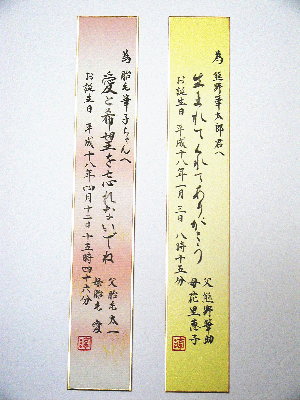 為 熊野筆太郎君へ
生まれてくれてありがとう
お誕生日 平成十八年一月三日 八時十五分
父 熊野筆助
母 花里恵子
為 胎毛筆子ちゃんへ
愛と希望を忘れないでね
お誕生日 平成十八年四月十二日 十五時四十六分
父 胎毛太一
母 胎毛 愛